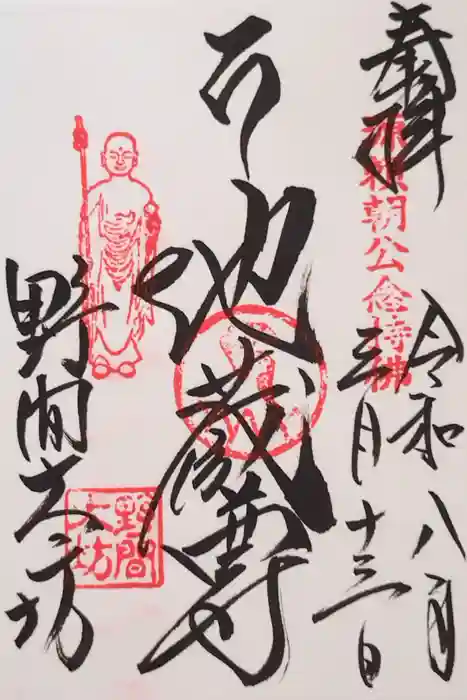 奉拝
源頼朝公念持佛
令和八年
三月十三日
ह
地蔵尊
野間大坊
野間
大坊